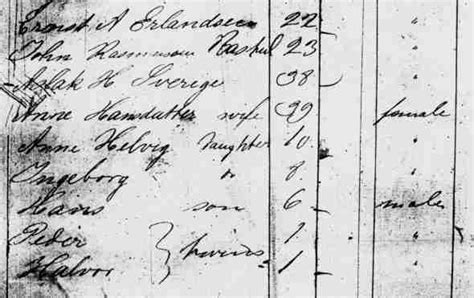 Ernst A Erlandsen 22 "
John Rasmusson Rastul 23 "
Aslak H Sverige 38 "
Anne Hansdatter wife 29 female
Anne Helvig Daughter 10 "
Ingeborg " 8 "
Hans son 6 males
Peder } twins 1 "
Halvor 1 "